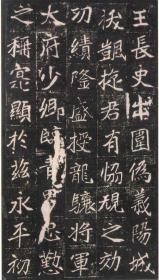 王長史出圍偽義陽城
拔凱旋君有協規之効
功績隆盛授龍驤將軍
太府少卿臨青忠懃
之稱寔顯於茲永平初